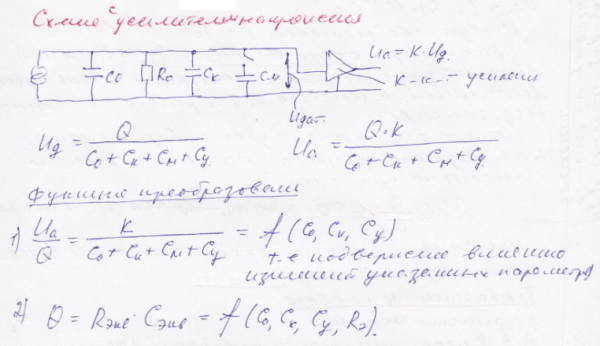 Схема с усилителем напряжения
C0 R0 Cк Cм Uдат. Uа = K·Uд.
K – к-т усиления
Uд = Q / (C0 + Cк + Cм + Cу) Uа = Q·K / (C0 + Cк + Cм + Cу)
Функция преобразования
1) Uа / Q = K / (C0 + Cк + Cм + Cу) = f (C0, Cк, Cу)
т.е подвержена влиянию
изменений указанных параметров
2) θ = Rэкв · Cэкв = f (C0, Cк, Cу, Rэ).